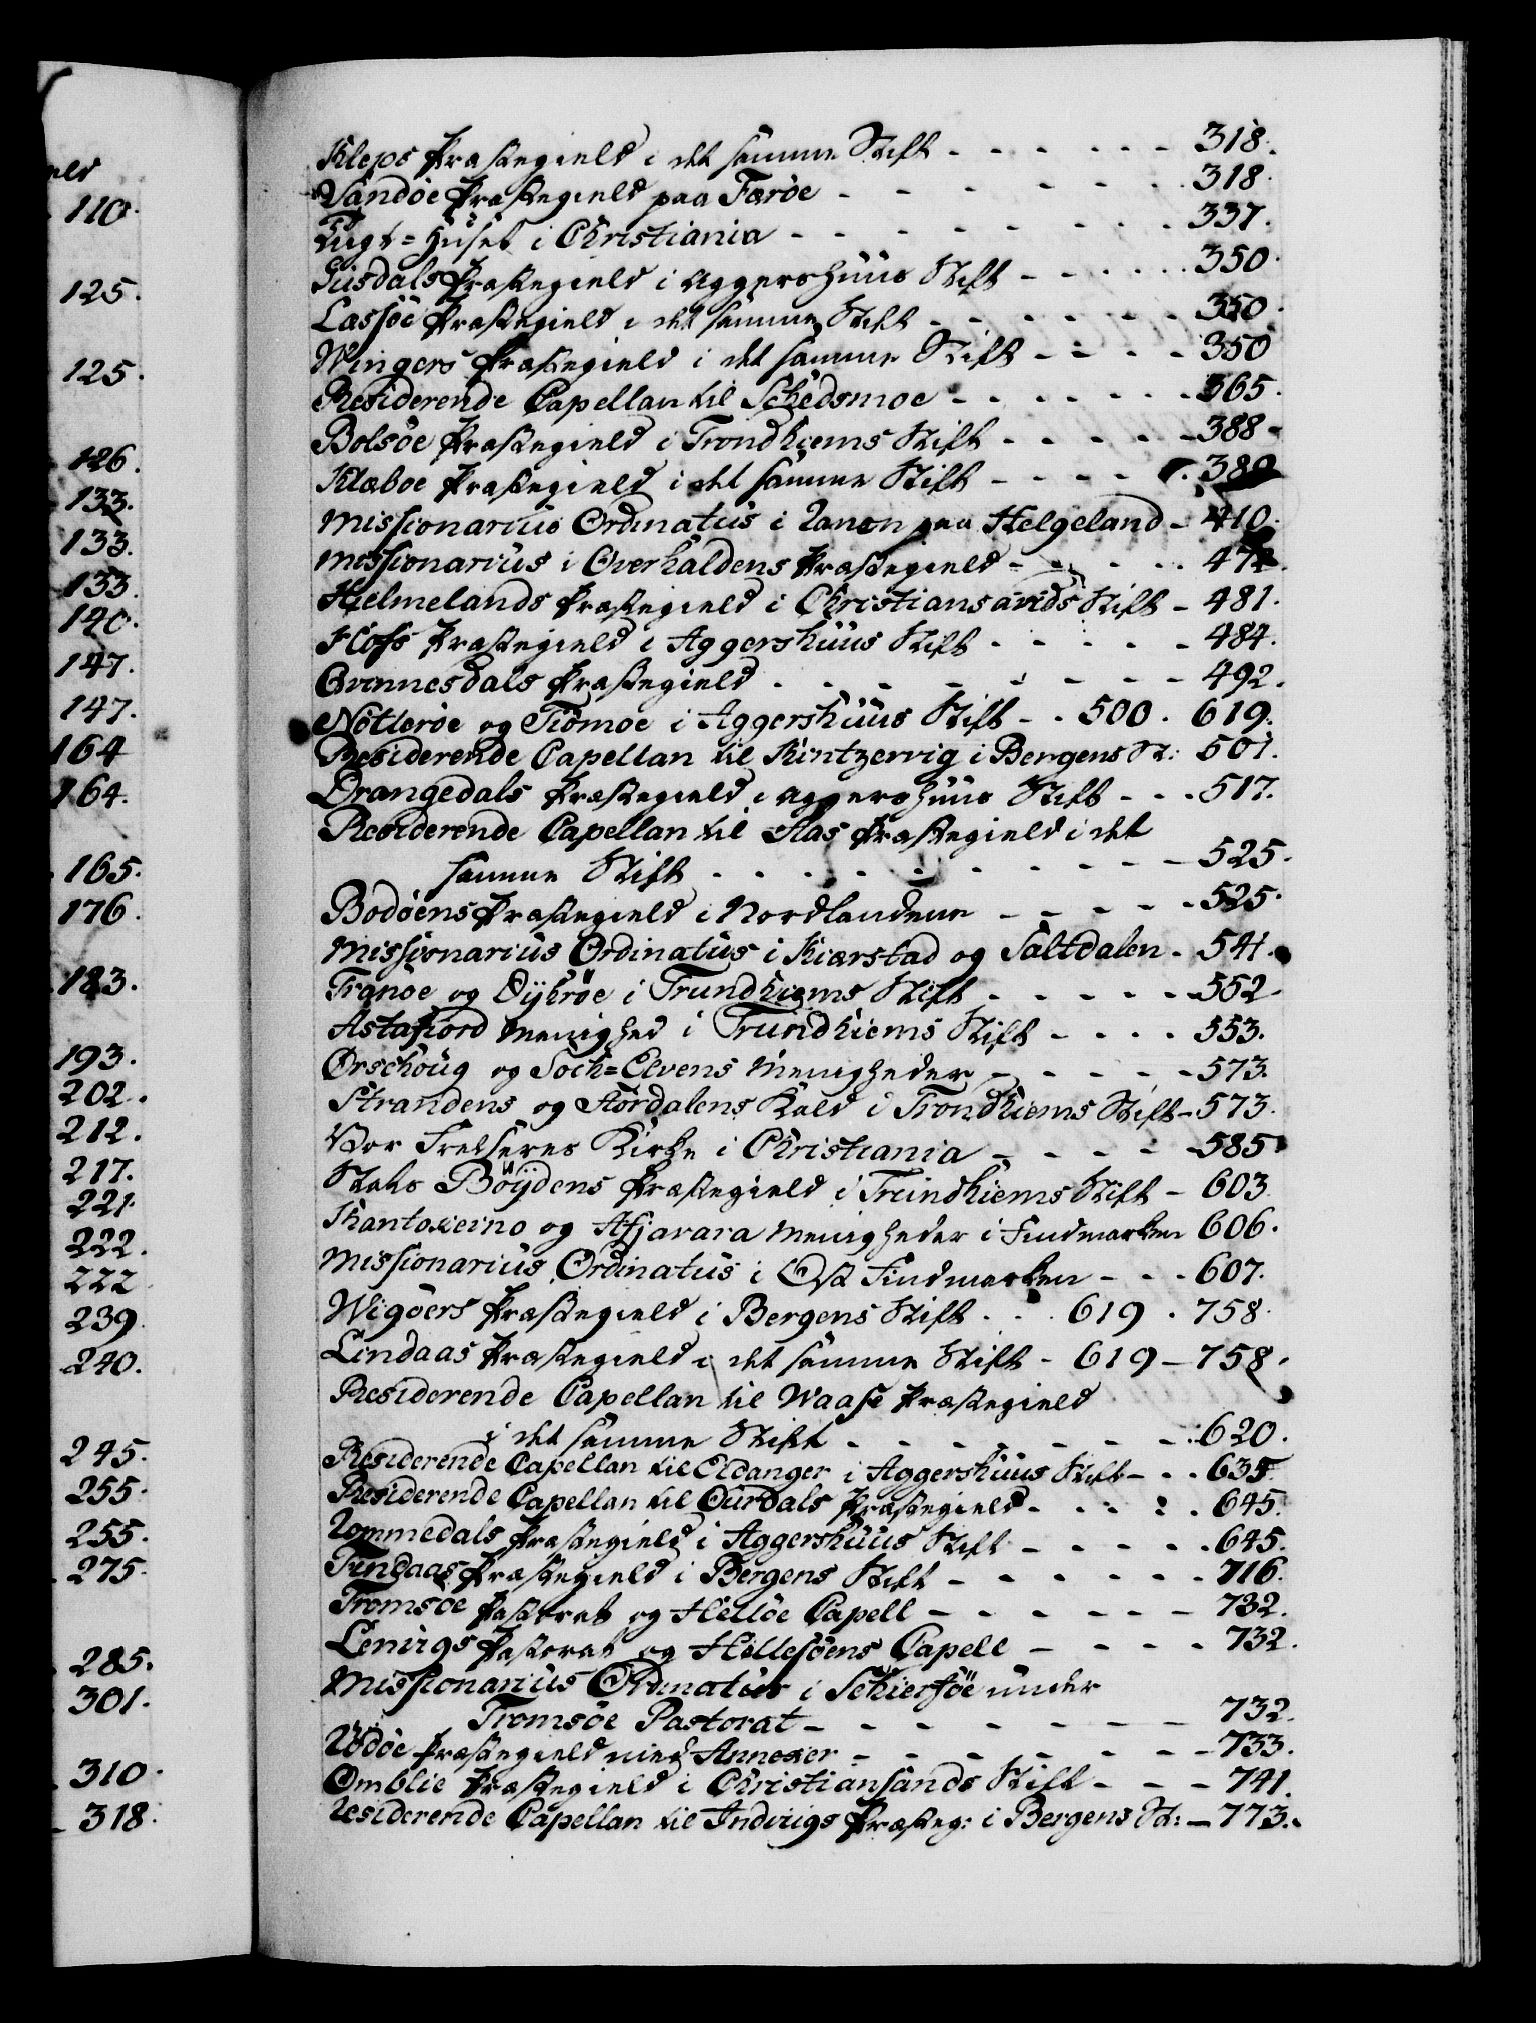 eld
110.
125.
125.
126.
133.
133.
133.
140.
147.
147.
164
164.
165.
176.
183.
193.
202.
212.
217.
221.
222.
222
239.
240.
245.
255.
255.
275.
285.
301.
310.
318.
Kleps Præstegield i det samme Stift - - - - - - 318.
Sandöe Præstegield paa Færöe - - - - - - - 318.
Tugt=Huset i Christiania - - - - - - - 337.
Giisdals Præstegield i Aggershuus Stift - - - - - 350.
Lassöe Præstegield i det samme Stift - - - - - - 350.
Wingers Præstegield i det samme Stift - - - - 350
Residerende Capellan til Schedsmoe - - - - - - 365.
Bolsöe Præstegield i Trondhiems Stift - - - - - 388.
Klæboe Præstegield i det samme Stift - - - - - 389
Missionarius Ordinatus i Ranen paa Helgeland - 410.
Missionarius i Overhaldens Præstegield - - - - - 472.
Hielmelands Præstegield i Christiansands Stift - 481.
Hofs Præstegield i Aggershuus Stift - - - - - 484.
Qvinnesdals Præstegield - - - - - - - - 492.
Nötteröe og Tiömoe i Aggershuus Stift - . 500. 619.
Residerende Capellan til Kintzervig i Bergens St: 501.
Drangedals Præstegield i Aggershuus Stift - - - 517.
Residerende Capellan til Aas Præstegield i det
samme Stift - - - - - - - - - - 525.
Bodöens Præstegield i Nordlandene - - - - - 525.
Missionarius Ordinatus i Kiærstad og Saltdalen - 541.
Tranöe og Dyröe i Trundhiems Stift - - - - - 552.
Astafiord Menighed i Trundhiems Stift - - - - 553.
Örschoug og Soch=Elvens Menigheder - - - - - 573.
Strandens og Stördalens Kald i Trondhiems Stift - 573.
Vor Frelseres Kirke i Christiania - - - - - 585.
Böÿdens Præstegield i Trundhiems Stift - 603.
Kantokeino og Afjavara Menigheder i Findmarken 606.
Missionarius Ordinatus i Öst Findmarken - - - 607.
Wigöers Præstegield i Bergens Stift . . . 619. 758.
Lindaas Præstegield i det samme Stift - 619 - 758.
Residerende Capellan til Waase Præstegield
i det samme Stift - - - - - - - - 620.
Residerende Capellan til Eidanger i Aggershuus Stift - - - 635.
Residerende Capellan til Ourdals Præstegield - - - - - 645.
Rommedals Præstegield i Aggershuus Stift - - - - - 645.
Findaas Præstegield i Bergens Stift - - - - - - 716.
Tromsöe Pastorat og Hellöe Capell - - - - - - 732.
Lenvigs Pastorat og Hillesöens Capell - - - - 732.
Missionarius Ordinatus i Schierföe under
Tromsöe Pastorat - - - - - - - - 732.
Rödöe Præstegield med Annexer - - - - - - - 733.
Omblie Præstegield i Christiansands Stift - - - 741.
Residerende Capellan til Indvigs Præsteg: i Bergens St: - 773.